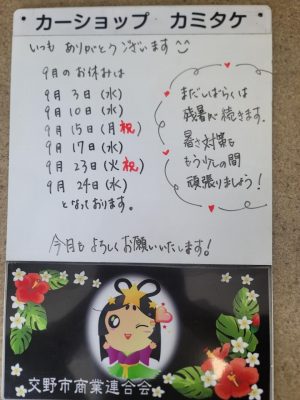 カーショップ カミタケ
いつも ありがとうございます
9月のお休みは
9月 3日(水)
9月 10日(水)
9月 15日(月 祝)
9月 17日(水)
9月 23日(火 祝)
9月 24日(水)
となっております。
まだしばらくは
残暑が続きます。
暑さ対策も
もう少しの間
頑張りましょう!
今月も よろしくお願いいたします!
交野市商業連合会